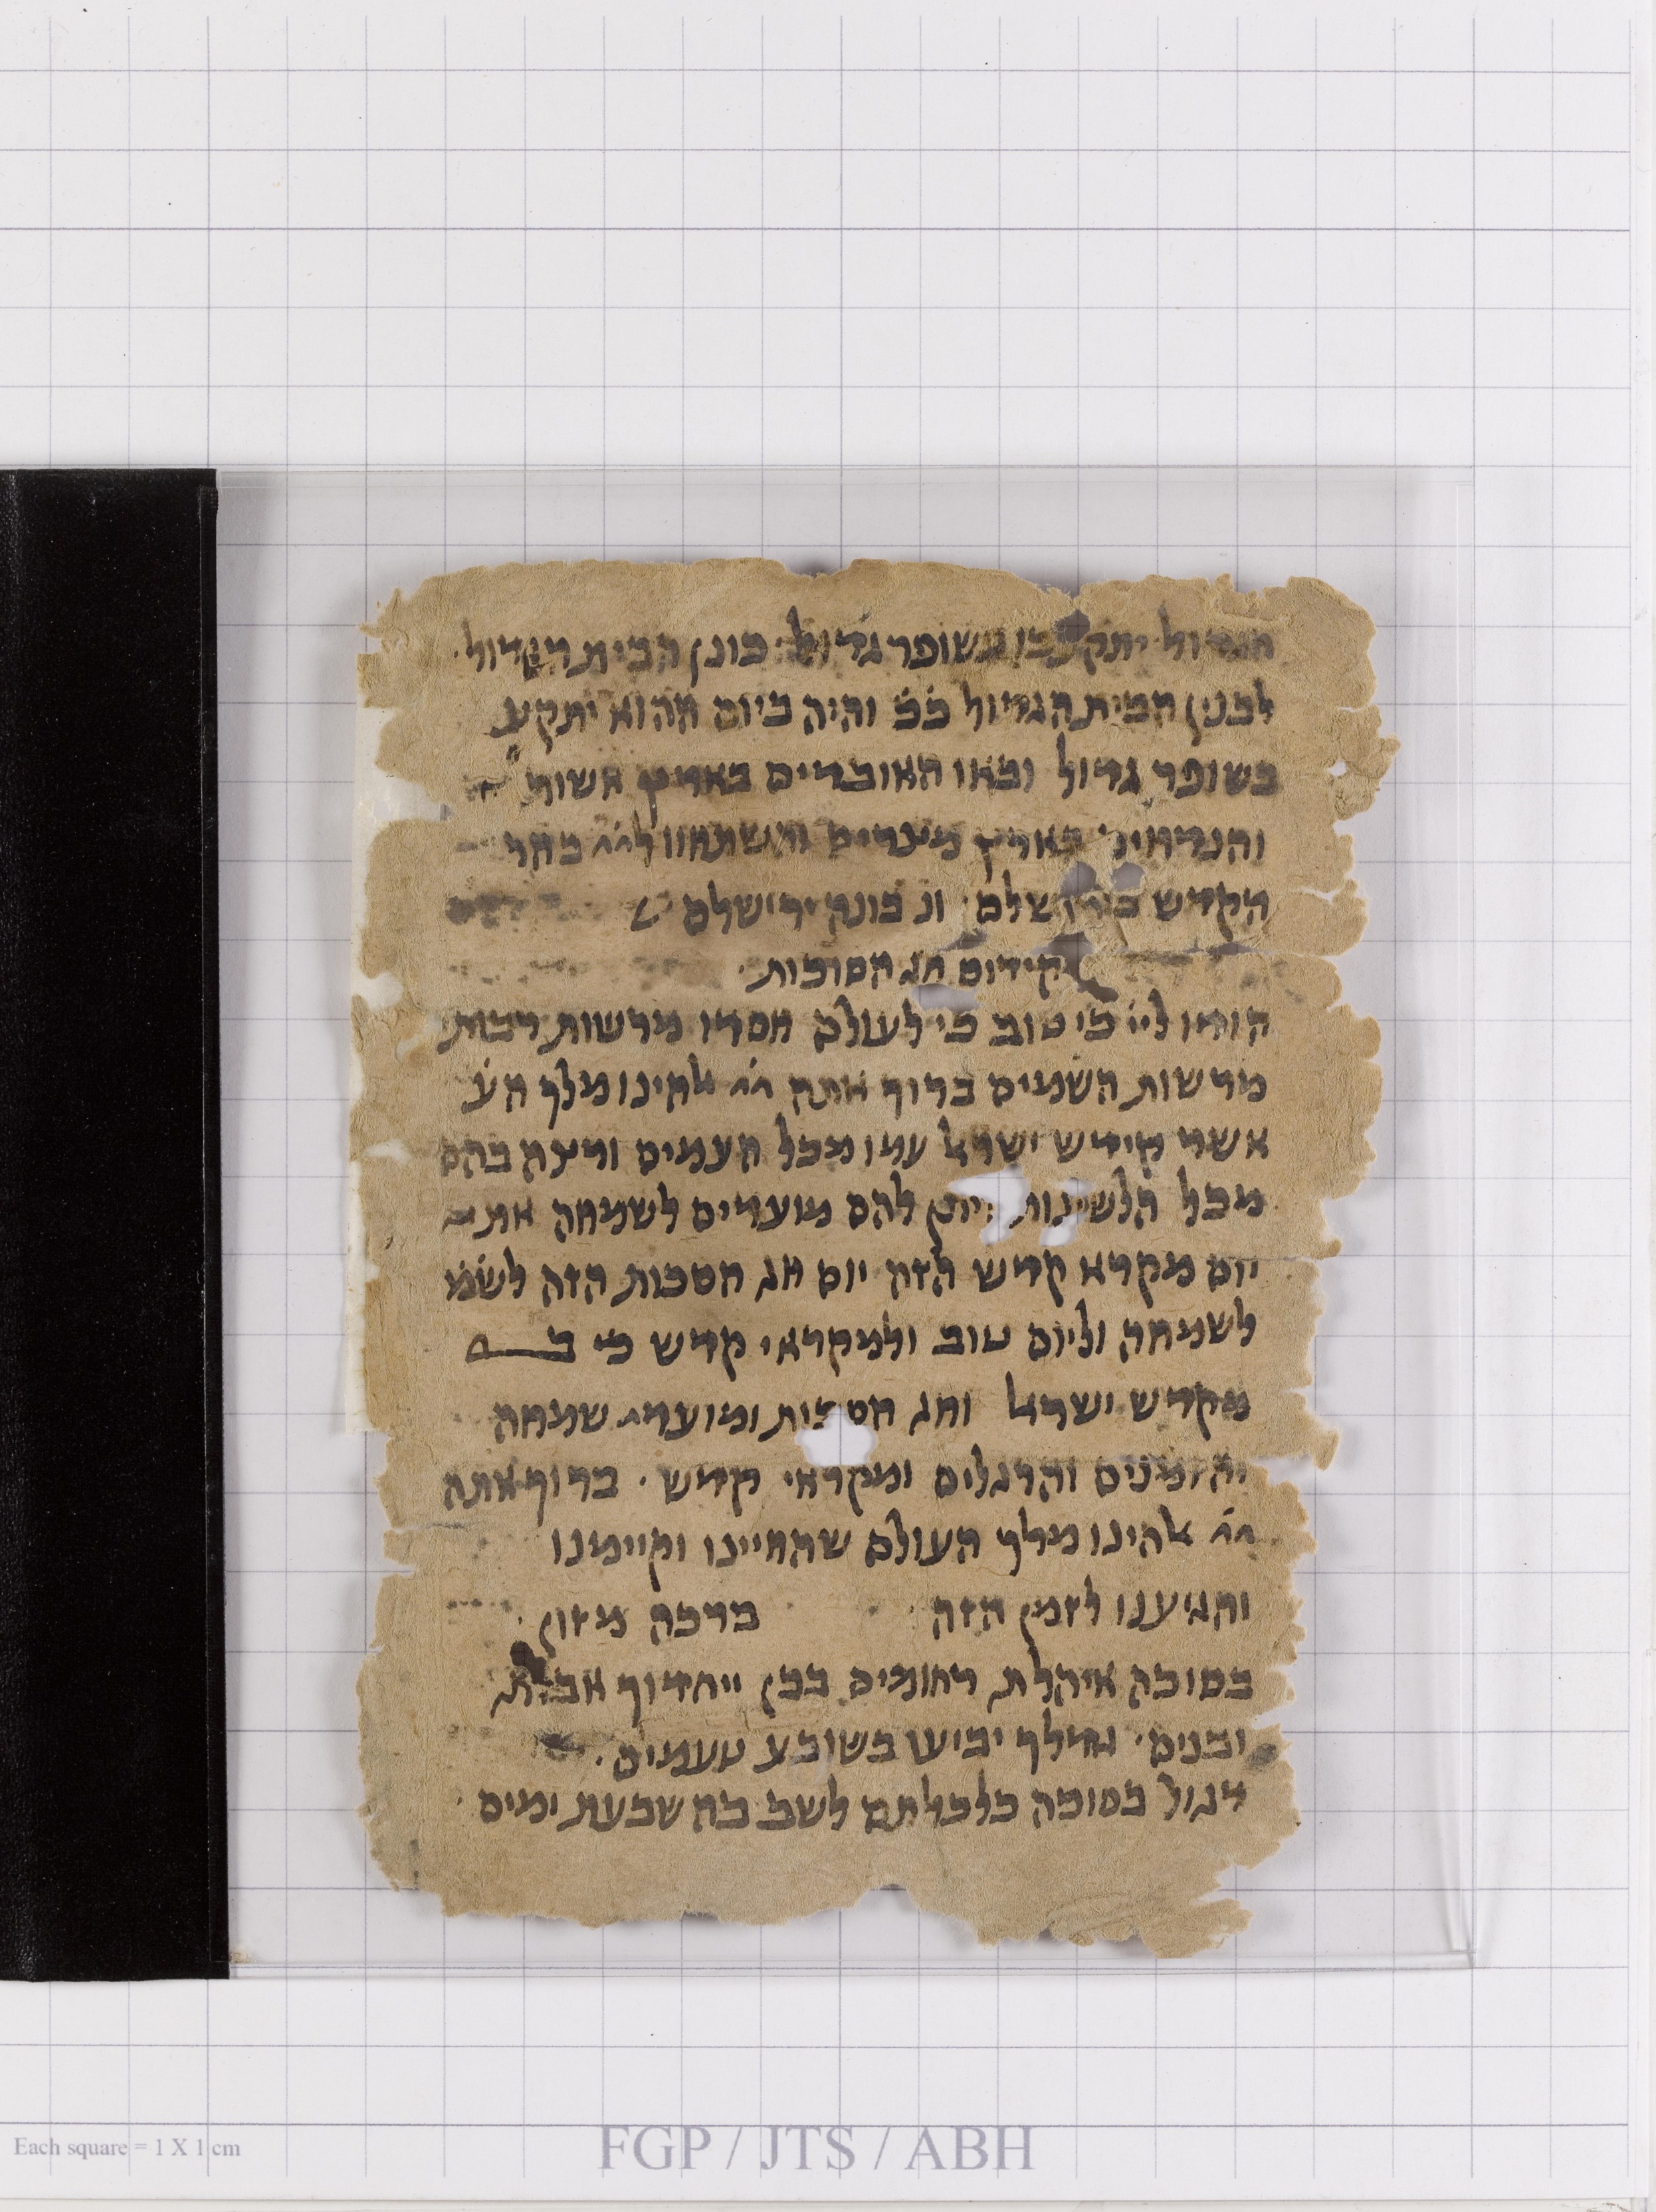 הגדול יתקע בו בשופר גדול כונן הבית הגדול
לבנין הבית הגדול ככ והיה ביום ההוא יתקע
בשופר גדול ובאו האובדים בארץ אשור
והנדחי׳ בארץ מצרים והשתחוו ליי בהר
הקדש בירושלם ונ בונה ירושלם
קידוש חג הסוכות
הודו ליי׳ כי טוב כי לעולם חסדו מרשות רבות
מרשות השמים ברוך אתה יי אלהינו מלך הע
אשר קידש ישראל עמו מכל העמים ורצה בהם
מכל הלשונות ויתן להם מועדים לשמחה את
יום מקרא קדש הזה יום חג הסכות הזה לשמ
לשמחה וליום טוב ולמקראי קדש כי ב
מקדש ישראל וחג הסכות ומועדי שמחה
והזמנים והרגלים ומקראי קדש ברוך אתה
יי אלהינו מלך העולם שהחיינו וקיימנו
והגיענו לזמן הזה ברכה מזון
בסוכה איהלת רחומים בכן ייחדוך אבות
ובנים יביעו בשובע טעמים
דגול בסוכה כלכלתם לשב בה שבעת ימים
Each square = 1 X 1 cm
FGP / JTS / ABH